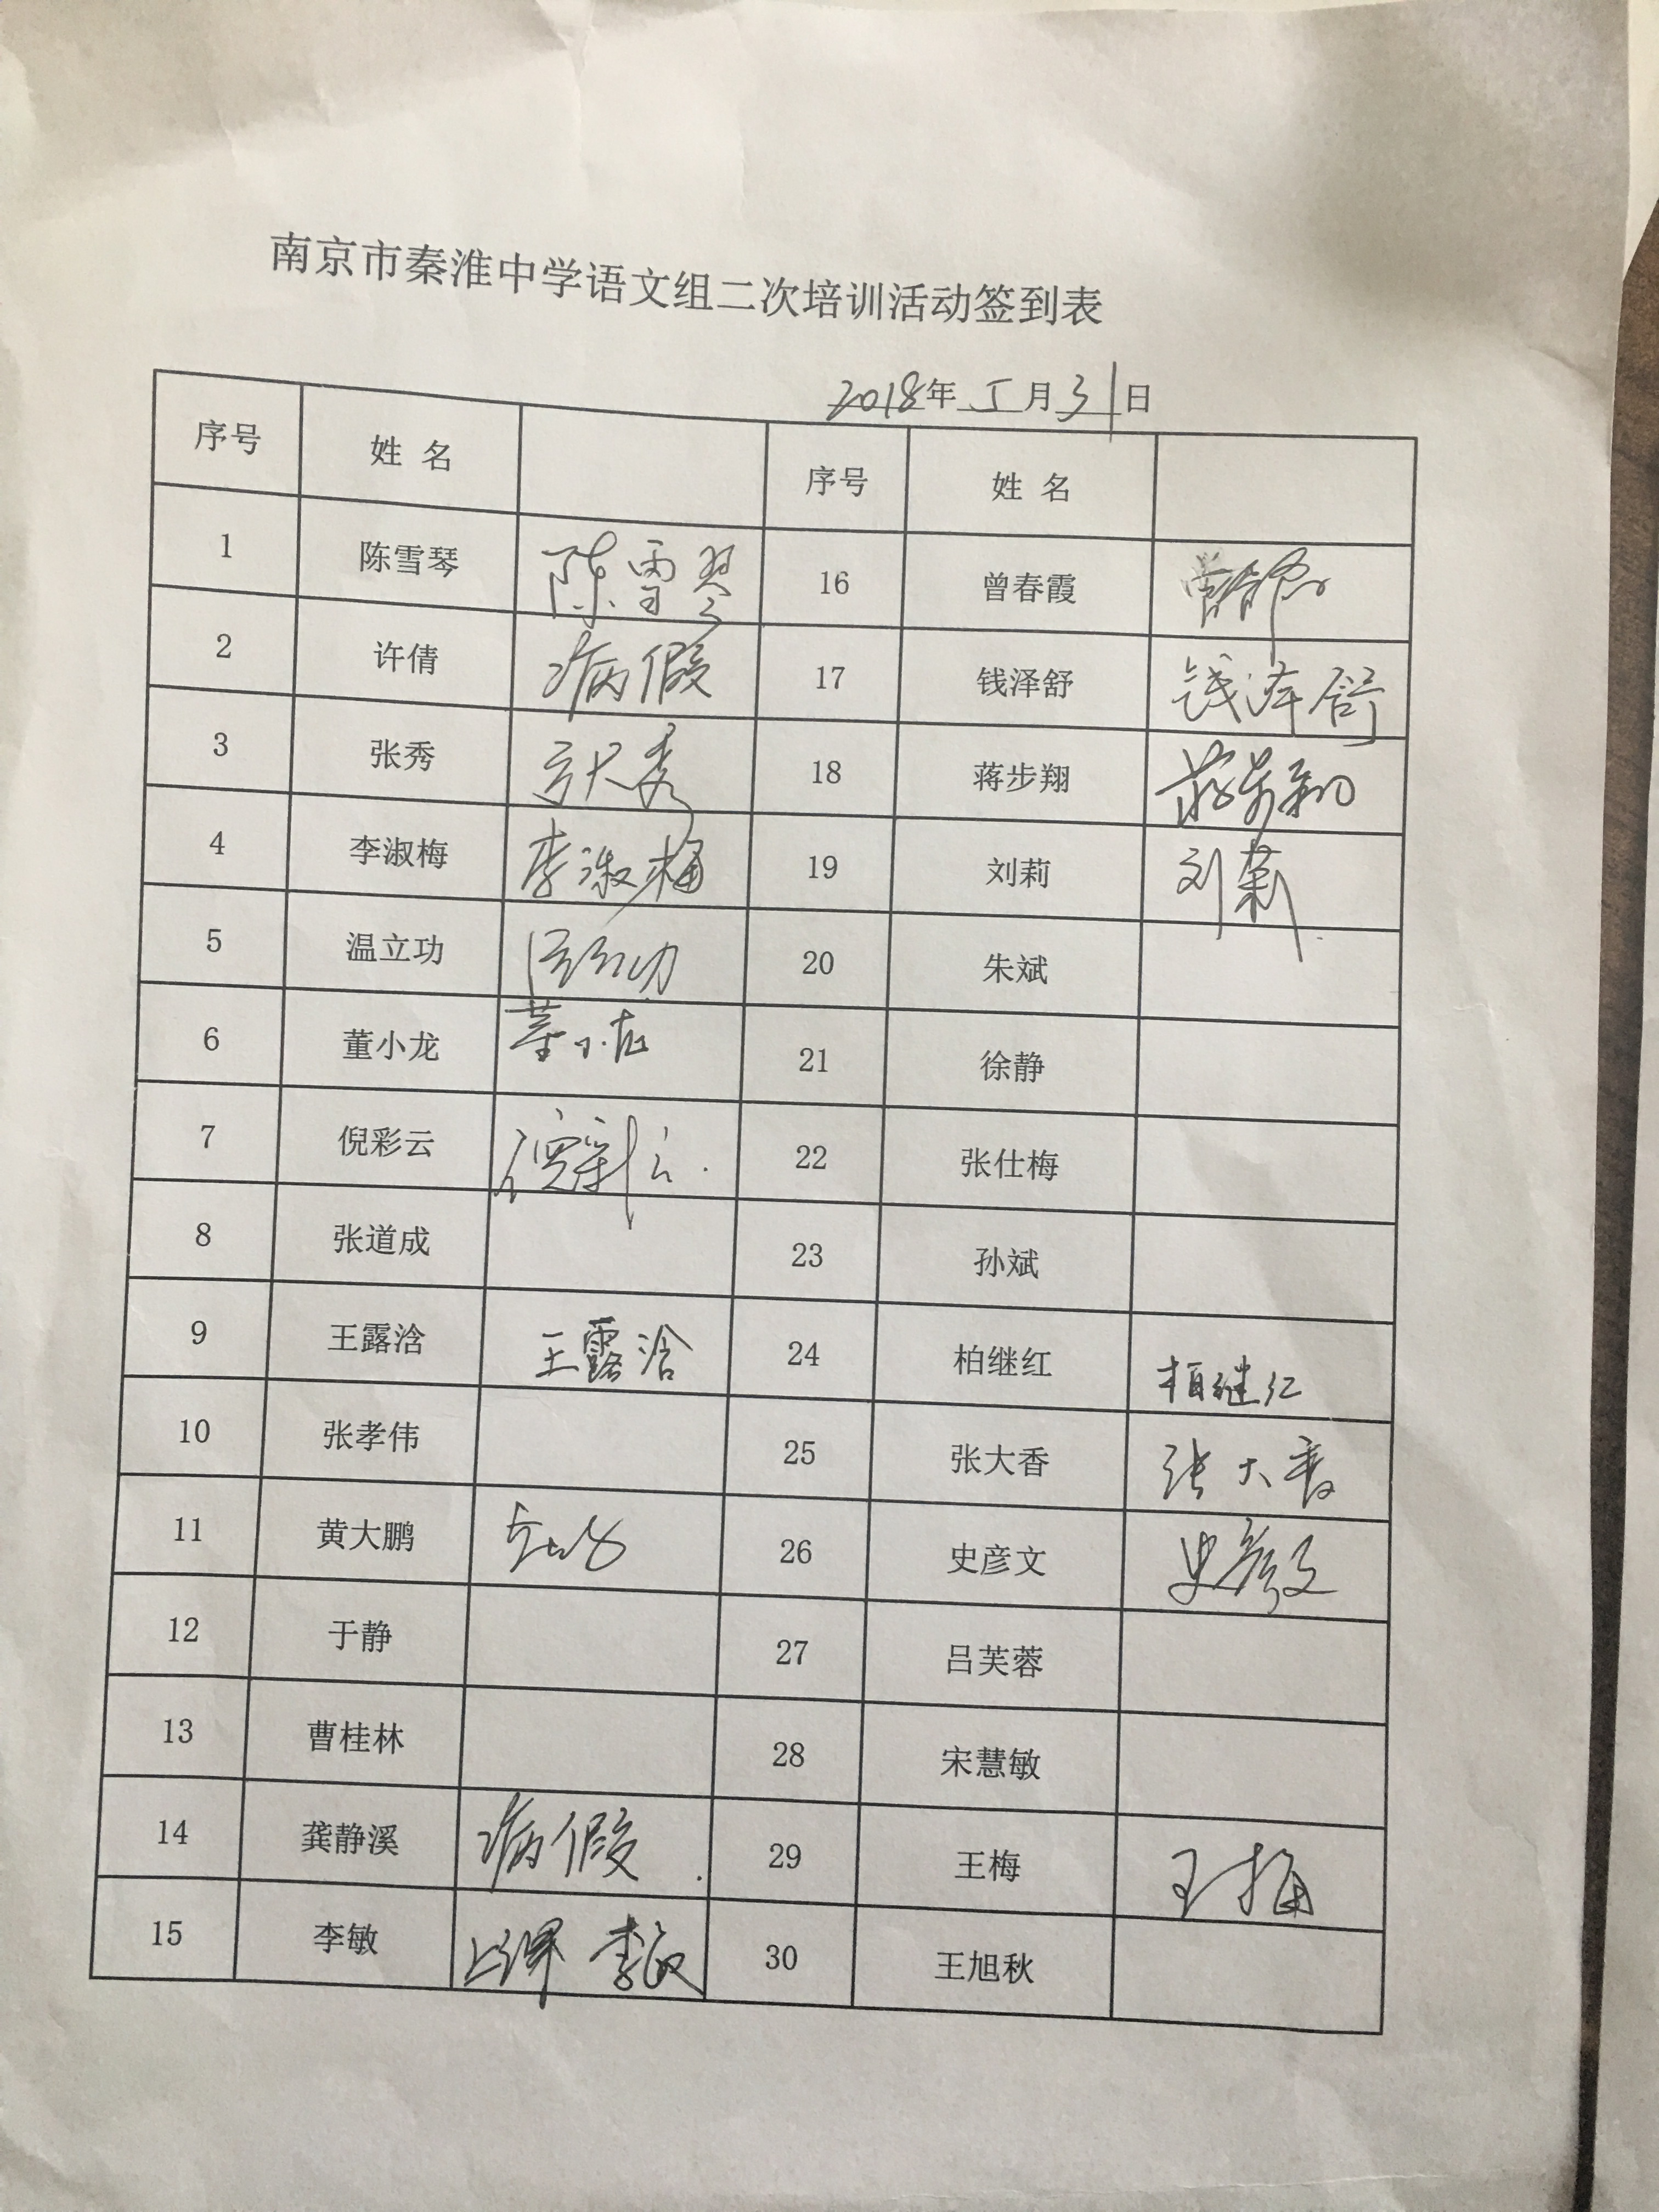 南京市秦淮中学语文组二次培训活动签到表
2018年 5 月 31 日
序号 姓 名 序号 姓 名
1 陈雪琴 陈雪琴 16 曾春霞
2 许倩 病假 17 钱泽舒 钱泽舒
3 张秀 张秀 18 蒋步翔 蒋步翔
4 李淑梅 李淑梅 19 刘莉 刘莉
5 温立功 温立功 20 朱斌
6 董小龙 董小龙 21 徐静
7 倪彩云 倪彩云 22 张仕梅
8 张道成 23 孙斌
9 王露浛 王露浛 24 柏继红 柏继红
10 张孝伟 25 张大香 张大香
11 黄大鹏 26 史彦文 史彦文
12 于静 27 吕芙蓉
13 曹桂林 28 宋慧敏
14 龚静溪 病假 29 王梅 王梅
15 李敏 上课 李敏 30 王旭秋